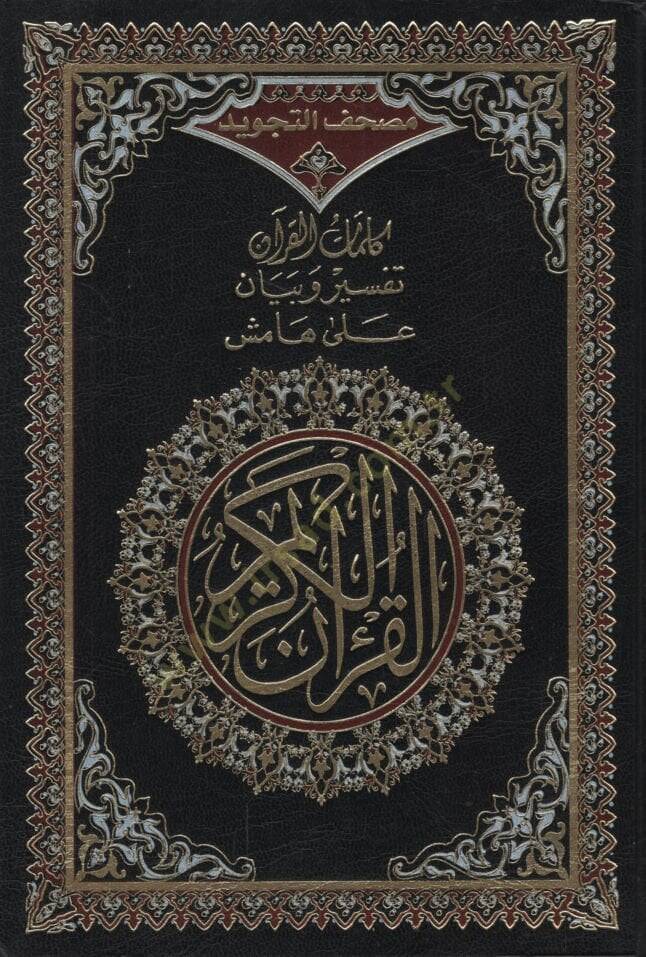 مصحف التجويد
كلمات القرآن
تفسير وبيان
على هامش
القرآن الكريم